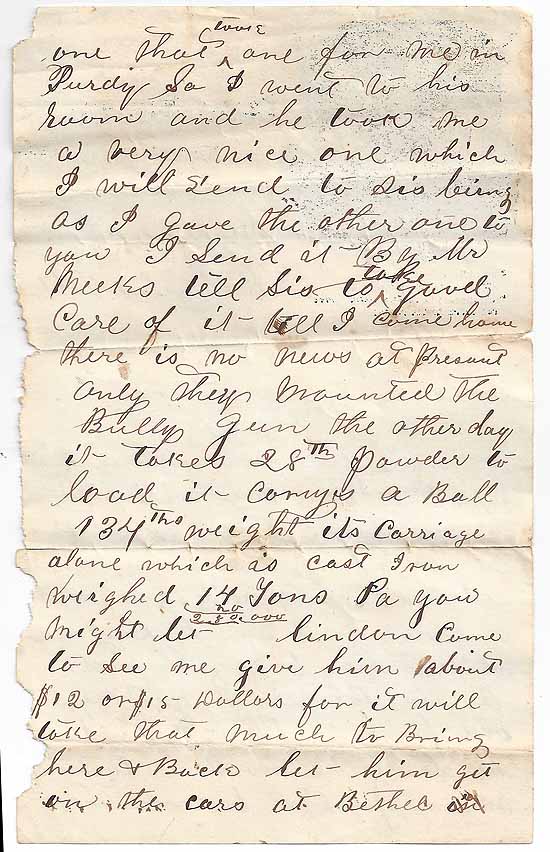 took
one that ^ one for me in
Purdy So I went to his
room and he took me
a very nice one which
I will Send to Sis being
as I gave the other one to
you I Send it By Mr
Meeks tell Sis to ^ take good
Care of it till I come home
there is no news at present
only they mounted the
Bully Gun the other day
it takes 28th powder to
load it Carrys a Ball
134ths weight its Carriage
alone which is cast Iron
weighed 14 Tons Pa you
20
280,000
might let lindon Come
to See me give him about
$12 or $15 Dollars for it will
take that much to Bring
here & Back let him get
on the cars at Bethel